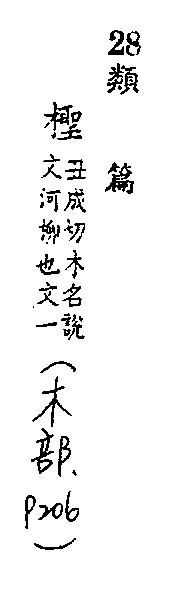 28類篇
檉
丑成切木名說
文河柳也文一
（木部、P206）